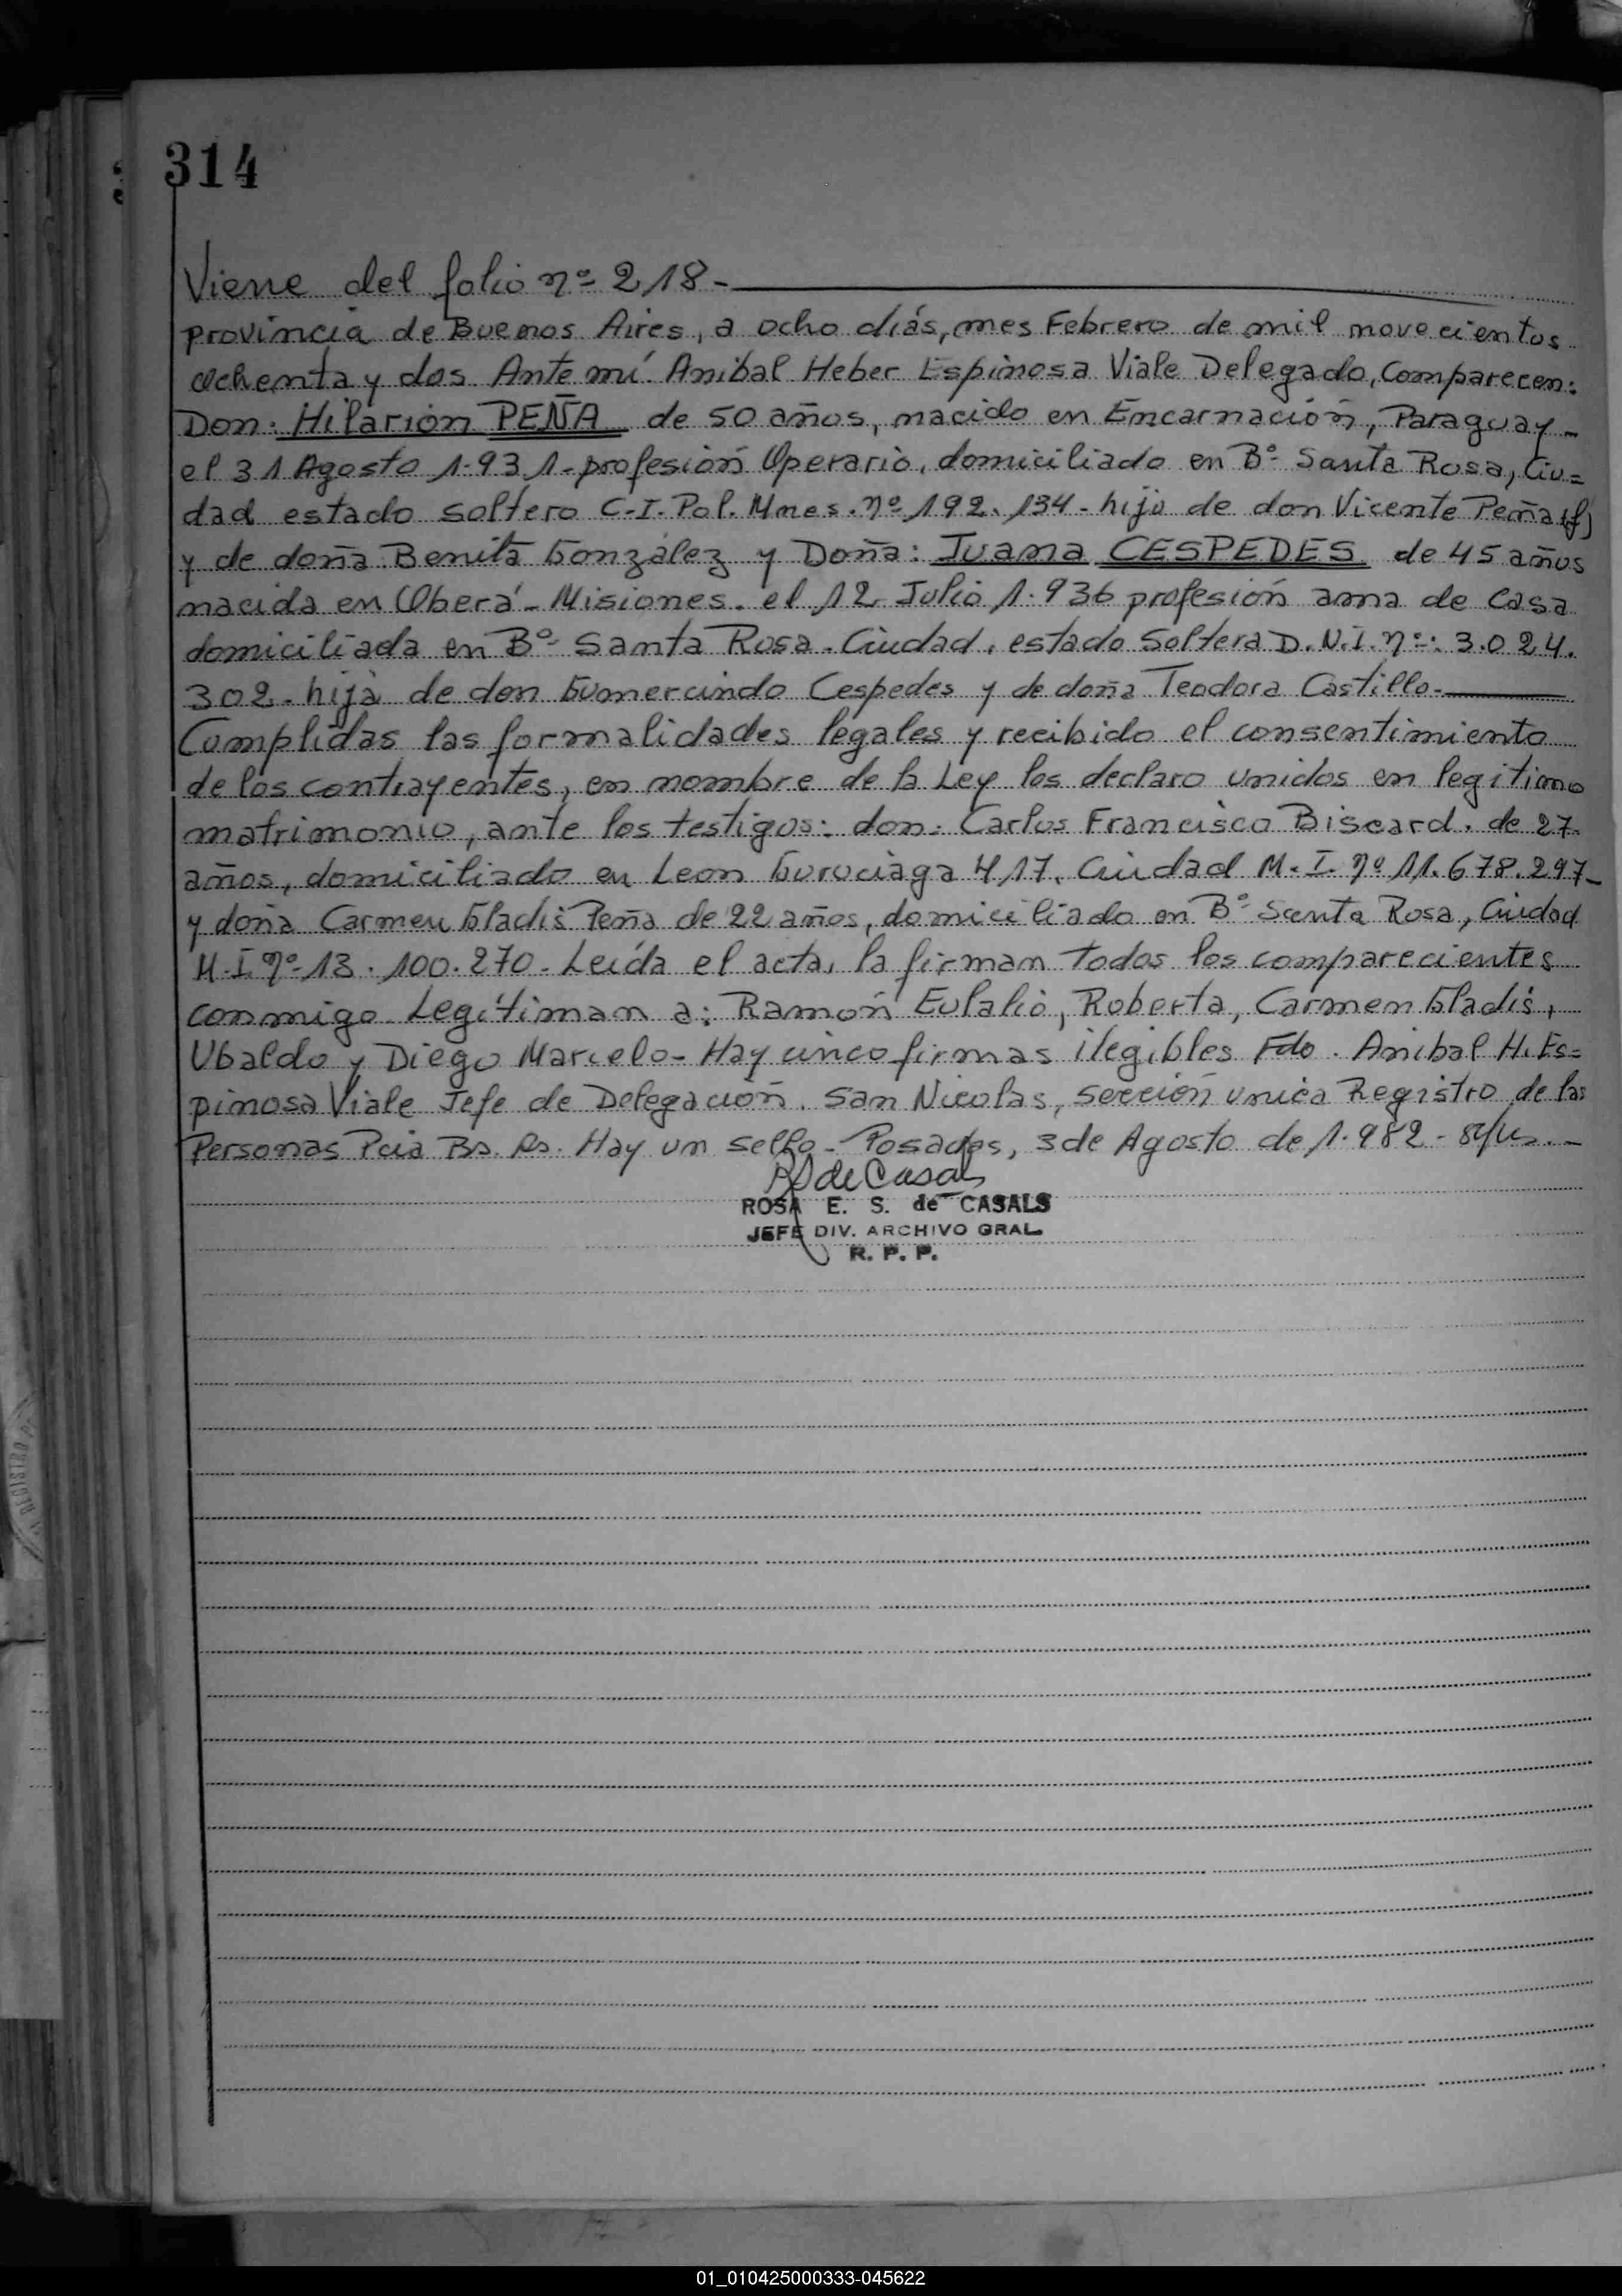 314
Viene del folio nº 218-
provincia de Buenos Aires, a ocho días, mes Febrero de mil novecientos
ochenta y dos Ante mí. Anibal Heber Espinosa Viale Delegado, Comparecen:
Don: Hilarión PEÑA de 50 años, nacido en Encarnación, Paraguay-
el 31 Agosto 1.931- profesión Operario, domiciliado en Bº Santa Rosa, Ciu=
dad estado soltero C.I. Pol. Mnes. nº 192.134- hijo de don Vicente Peña (f)
y de doña Benita González y Doña: Juana CESPEDES de 45 años
nacida en Oberá- Misiones. el 12 Julio 1.936 profesión ama de casa
domiciliada en Bº Santa Rosa. Ciudad, estado Soltera D.N.I. nº: 3.024.
302- hija de don Gumercindo Cespedes y de doña Teodora Castillo-
Cumplidas las formalidades legales y recibido el consentimiento
de los contrayentes, en nombre de la Ley los declaro unidos en legitimo
matrimonio, ante los testigos: don: Carlos Francisco Biscard. de 27
años, domiciliado en Leon Guruciaga 417. Ciudad M.I. nº 11.678.297-
y doña Carmen Gladis Peña de 22 años, domiciliado en Bº Santa Rosa, Ciudad
M.I. nº 13.100.270- Leída el acta, la firman todos los comparecientes
conmigo- Legitiman a: Ramón Eulalio, Roberta, Carmen Gladis,
Ubaldo y Diego Marcelo- Hay cinco firmas ilegibles Fdo. Anibal H. Es=
pinosa Viale Jefe de Delegación. San Nicolas, sección unica Registro de las
Personas Pcia Bs. As. Hay un sello- Posadas, 3 de Agosto de 1.982-
ROSA E. S. de CASALS
JEFE DIV. ARCHIVO GRAL.
R. P. P.
01_010425000333-045622